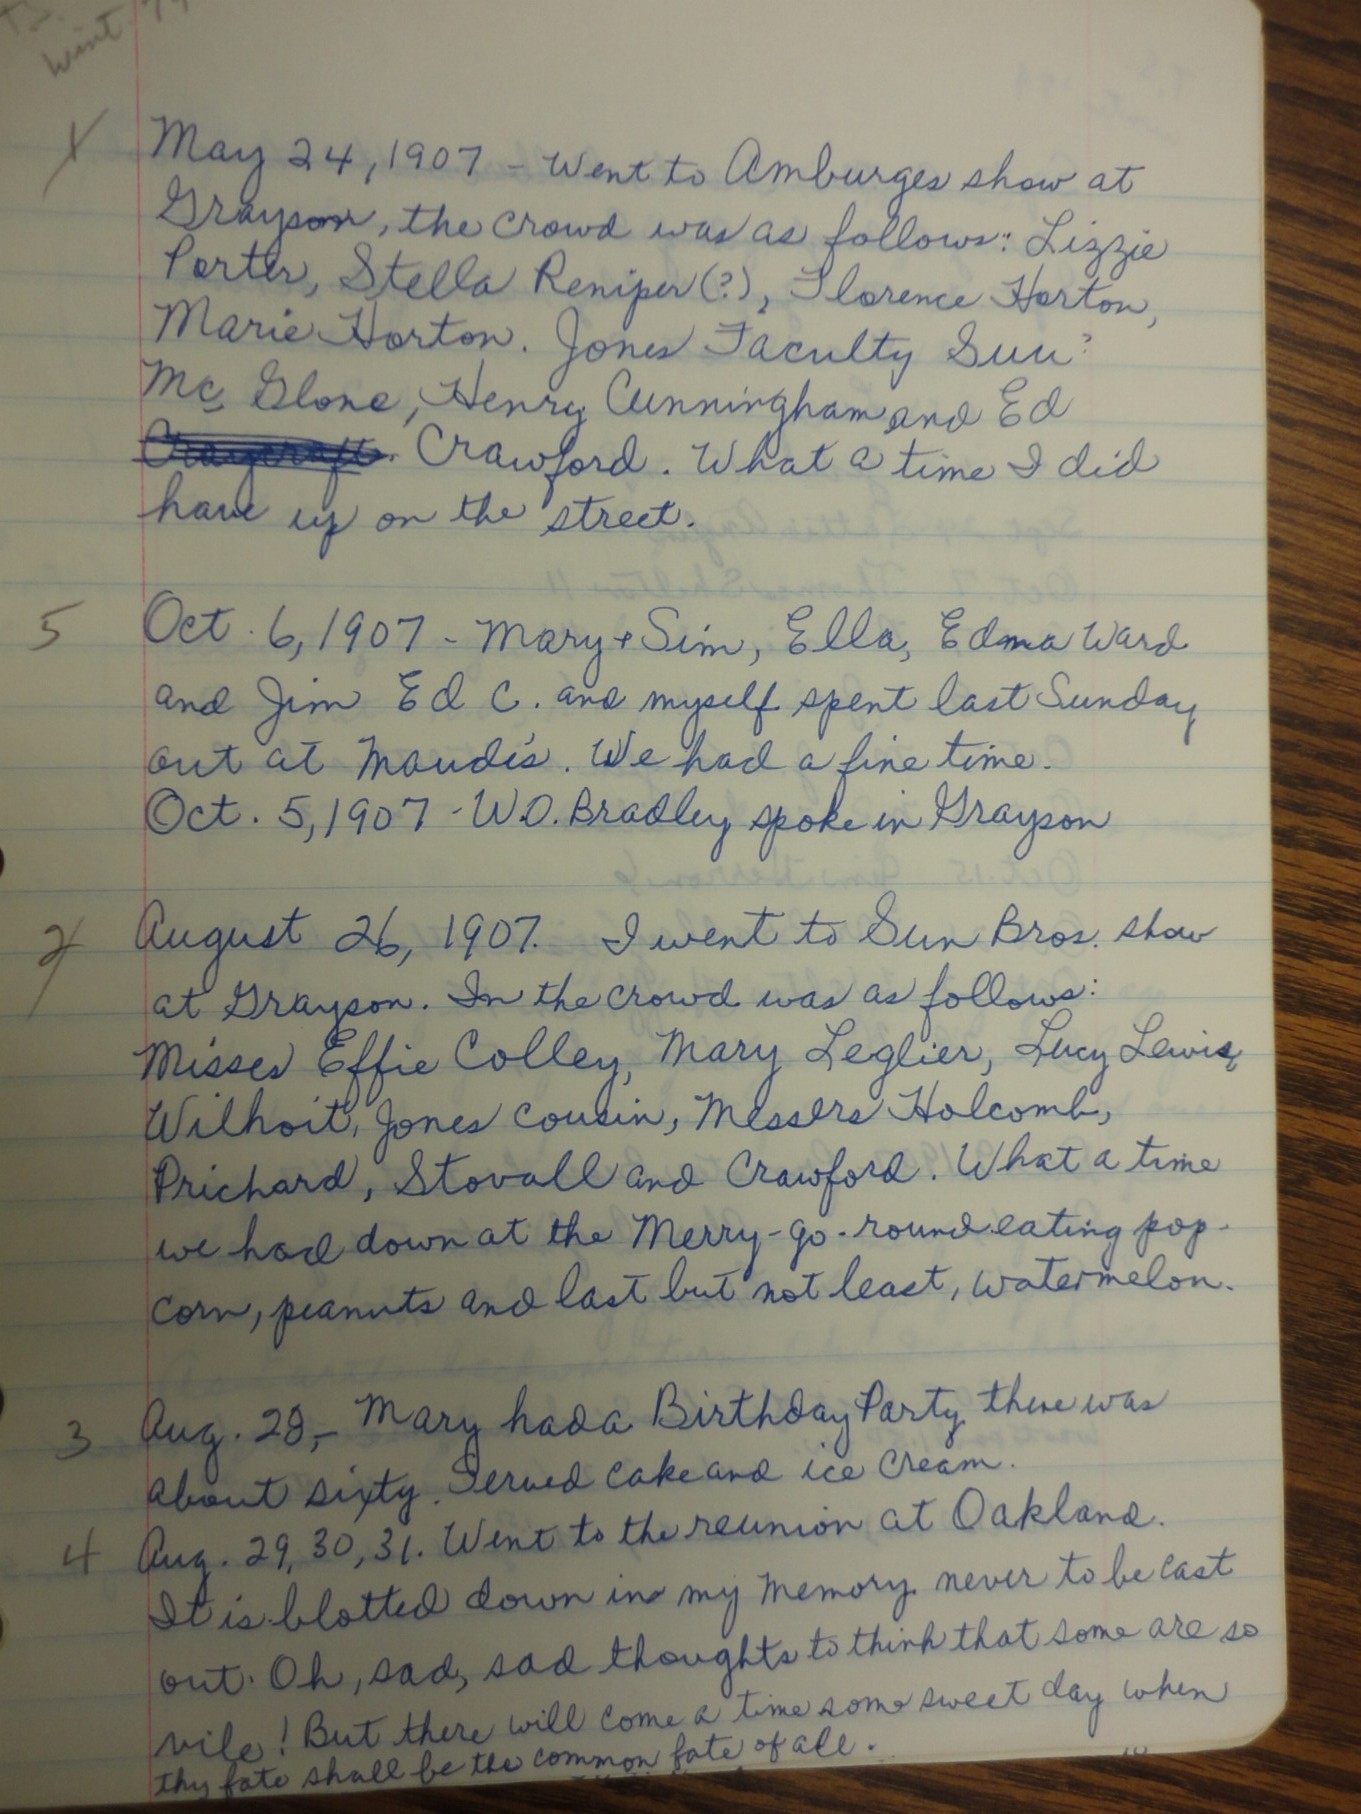 Wint
1 May 24, 1907 - Went to Amburges show at
Grayson, the crowd was as follows: Lizzie
Porter, Stella Reniper(?), Florence Horton,
Marie Horton. Jones Faculty Guu?
Mc Glone, Henry Cunningham and Ed
Craycraft. Crawford. What a time I did
have up on the street.
5 Oct. 6, 1907 - Mary + Sim, Ella, Edma Ward
and Jim Ed C. and myself spent last Sunday
out at Maudis. We had a fine time.
Oct. 5, 1907 - W.O. Bradley spoke in Grayson
2 August 26, 1907. I went to Sun Bros. show
at Grayson. In the crowd was as follows:
Misses Effie Colley, Mary Leglier, Lucy Lewis,
Wilhoit, Jones cousin, Messers Holcomb,
Prichard, Stovall and Crawford. What a time
we had down at the Merry-go-round eating pop-
corn, peanuts and last but not least, watermelon.
3 Aug. 28, - Mary had a Birthday Party there was
about sixty. Served cake and ice cream.
4 Aug. 29, 30, 31. Went to the reunion at Oakland.
It is blotted down in my memory never to be cast
out. Oh, sad, sad thoughts to think that some are so
vile! But there will come a time some sweet day when
thy fate shall be the common fate of all.